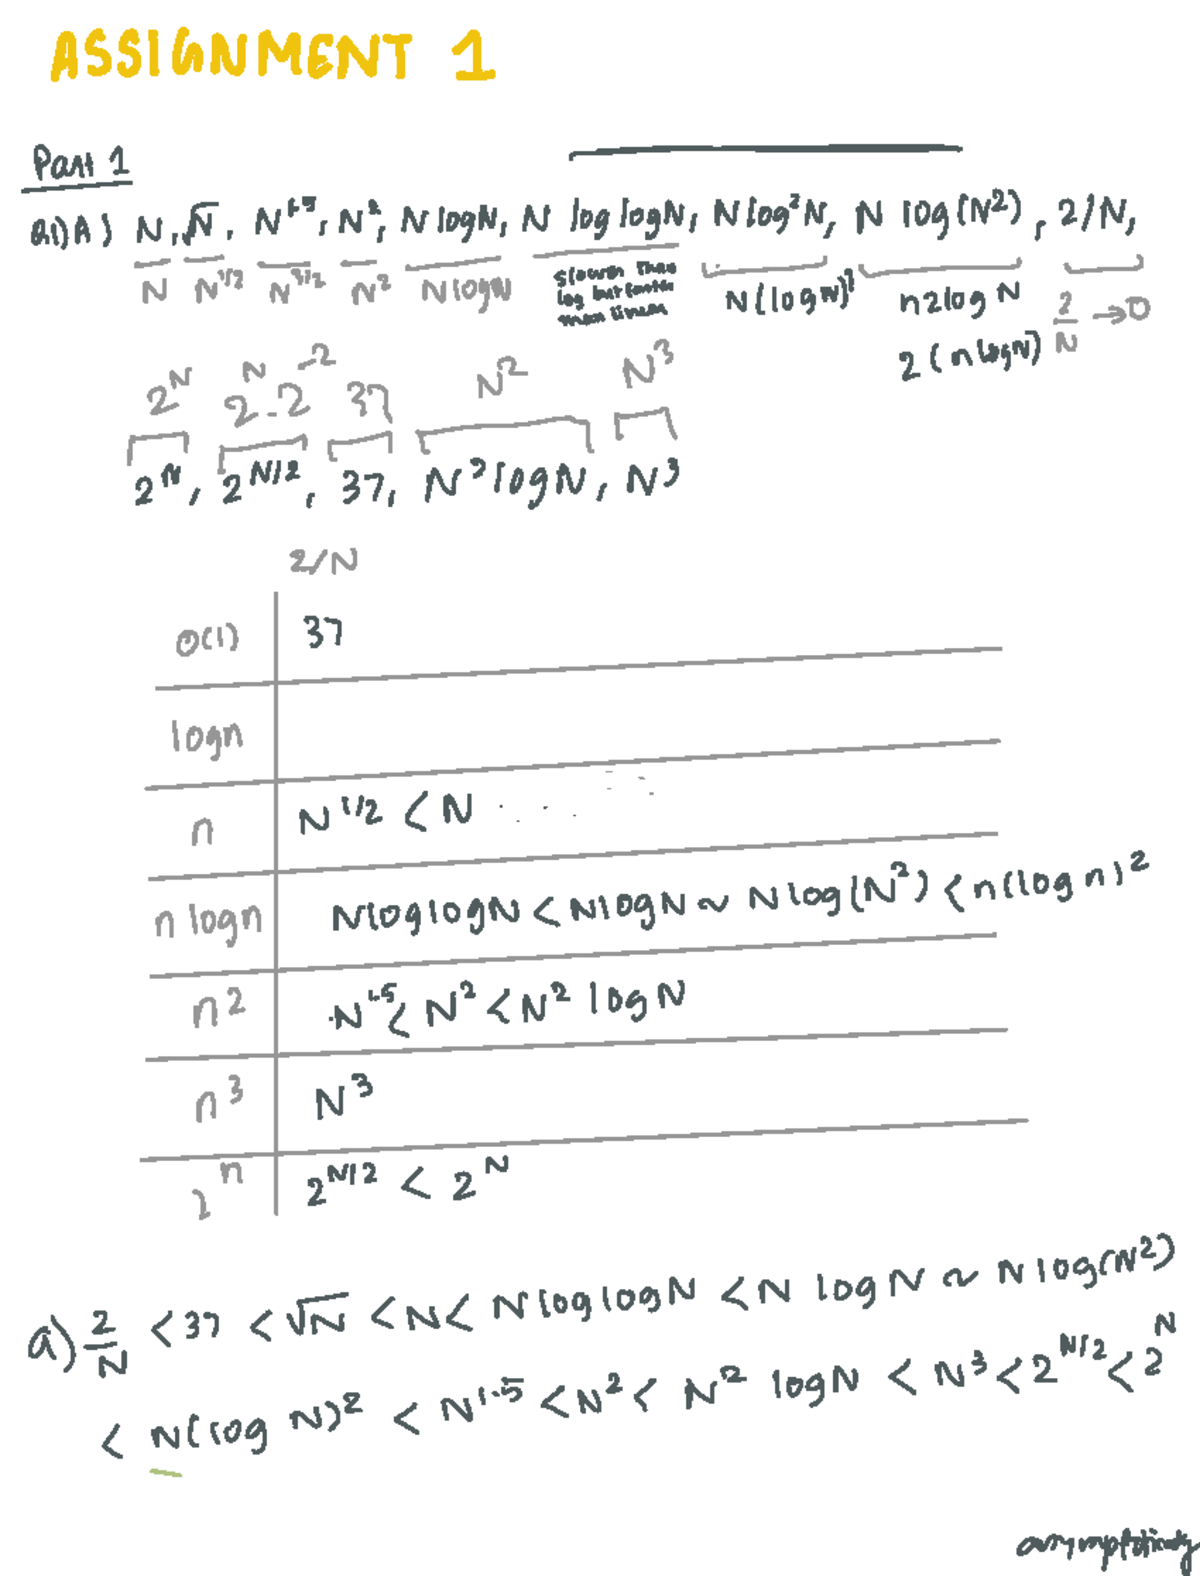 ASSIGNMENT 1
Part 1
Q1)A) N, √N, N^1.5, N^2, N logN, N log logN, N log^2 N, N log(N^2), 2/N,
N N^1/2 N^3/2 N^2 N logN slower than log but faster than linear N(logN)^2 n2log N 2/N →0
2(n logN)
2^N 2^N.2^-2 37 N^2 N^3
2^N, 2^N/2, 37, N^2 logN, N^3
2/N
O(1) 37
logn
n N^1/2 < N
n logn NloglogN < NlogN ~ N log(N^2) < n(log n)^2
n^2 N^1.5 < N^2 < N^2 log N
n^3 N^3
2^n 2^N/2 < 2^N
a) 2/N < 37 < √N < N < N loglogN < N log N ~ N log(N^2)
< N(log N)^2 < N^1.5 < N^2 < N^2 logN < N^3 < 2^N/2 < 2^N
asymptotically